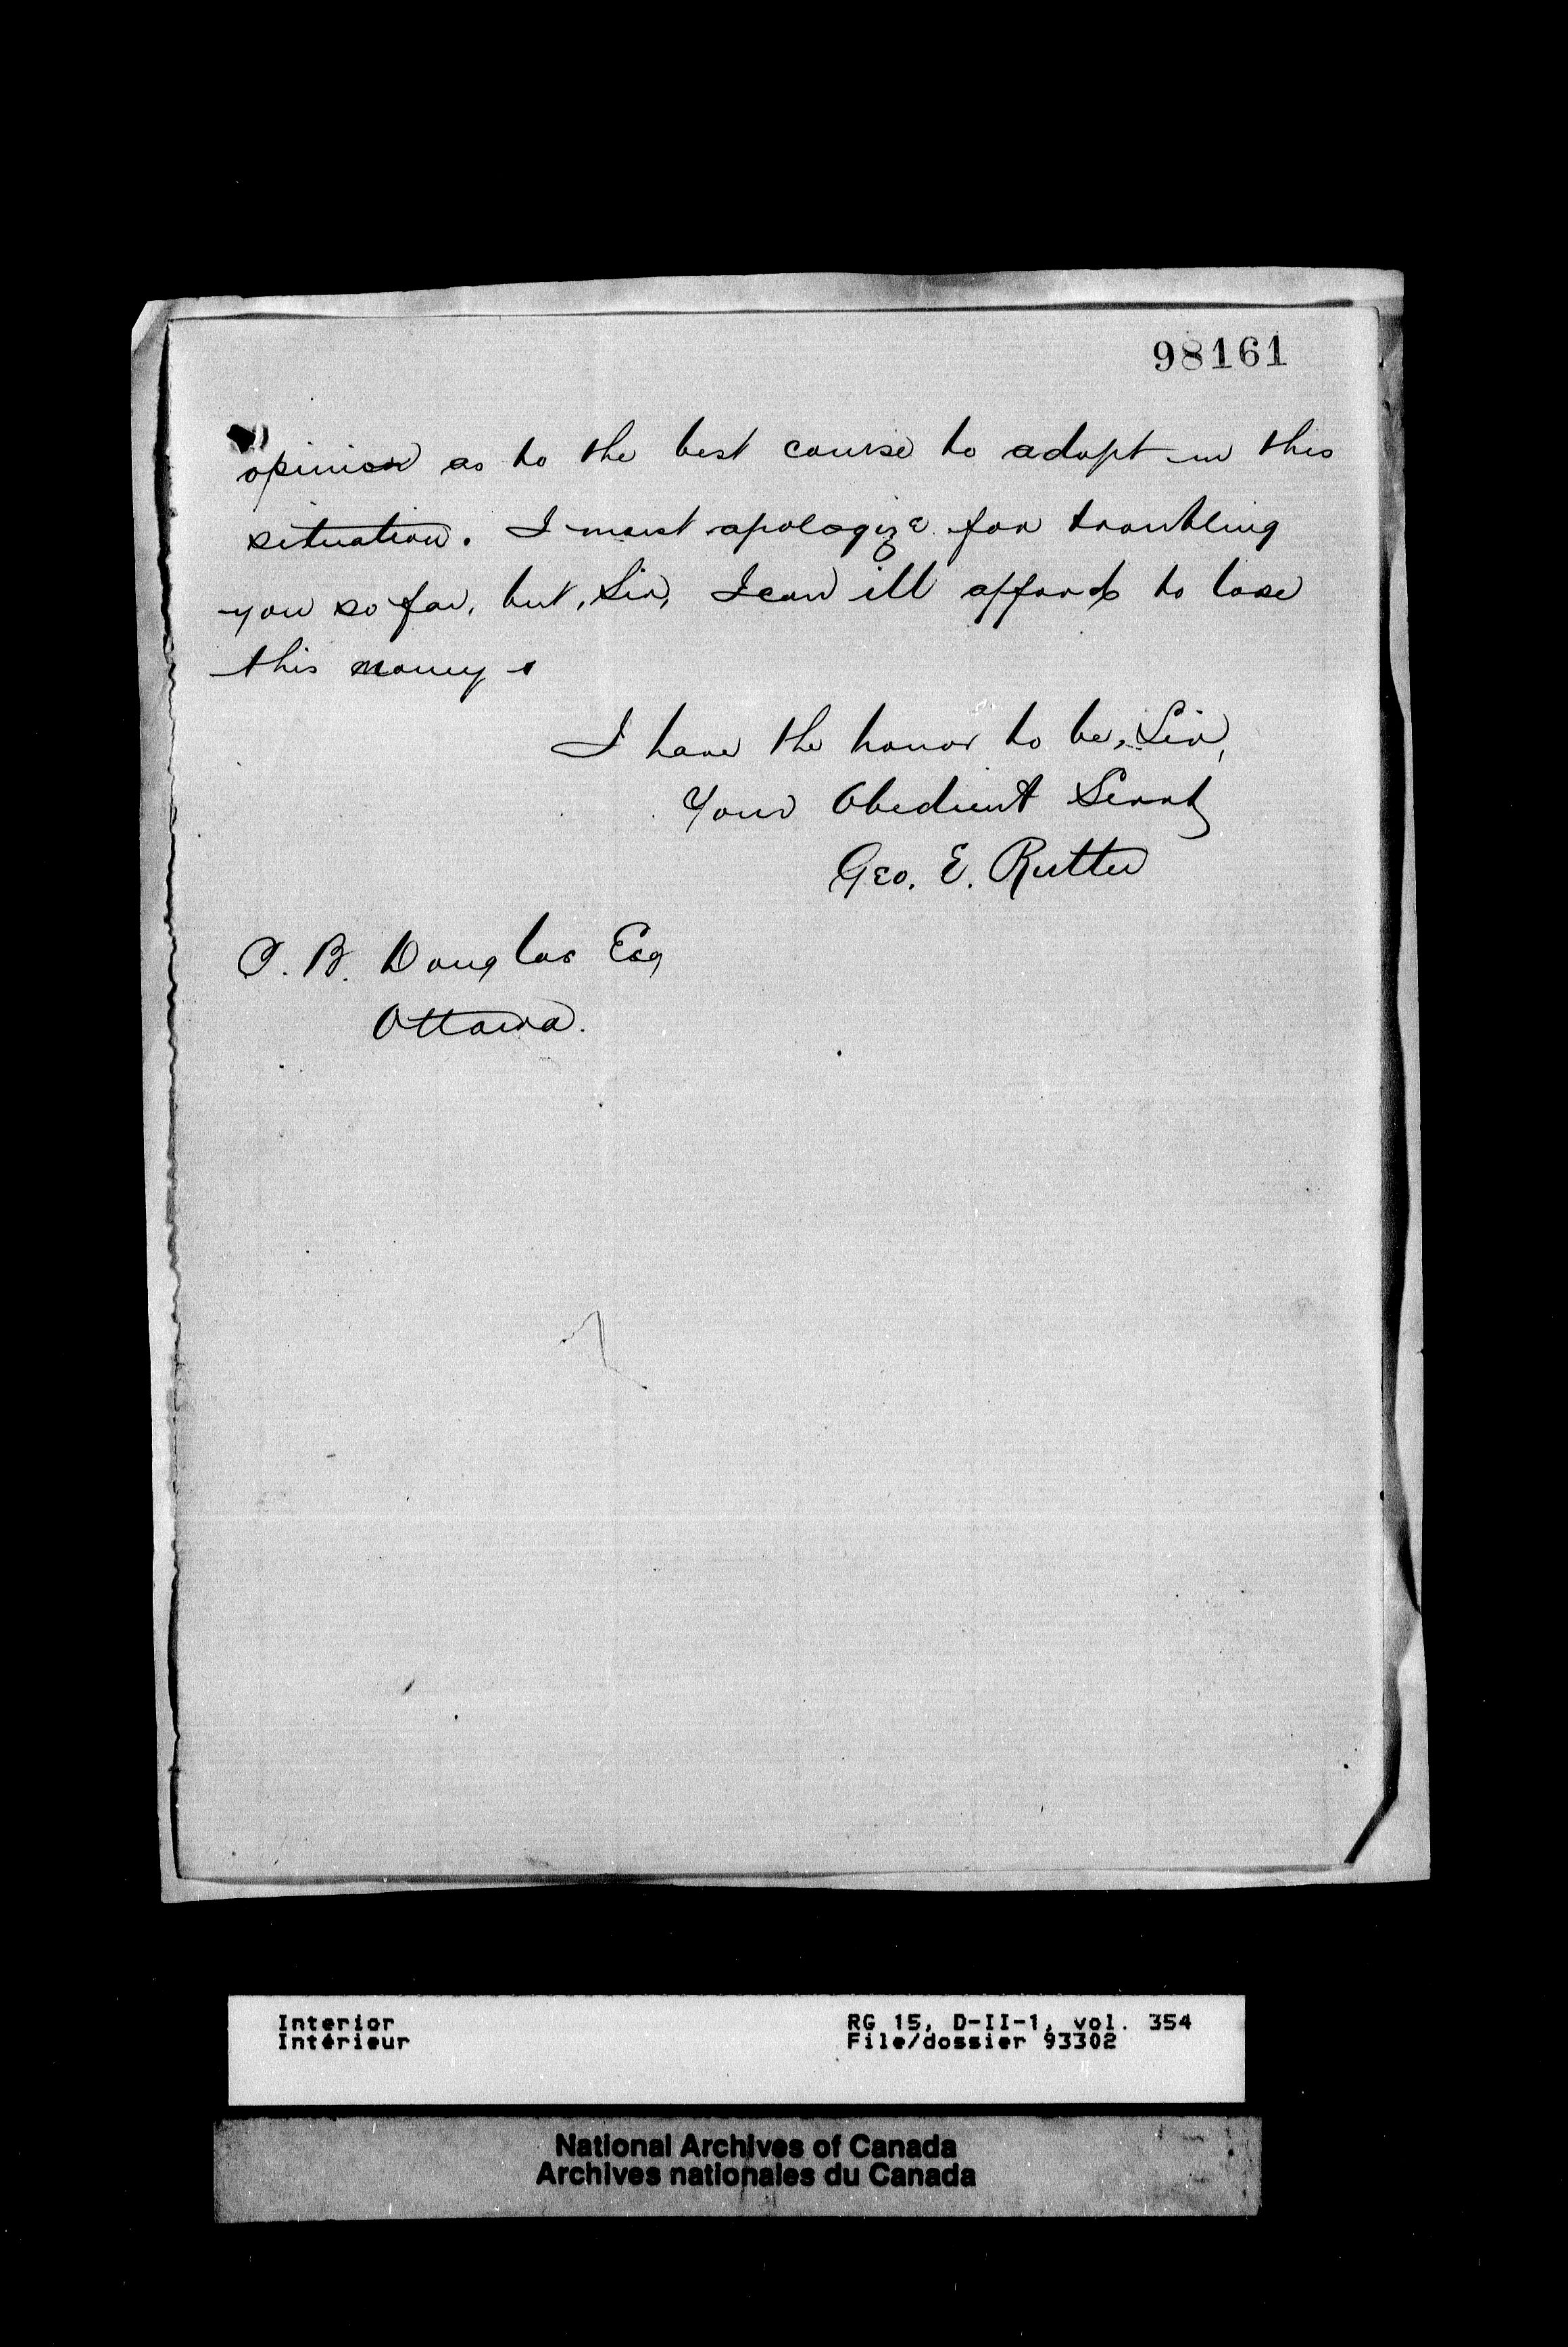 98161
opinion as to the best course to adopt in this
situation. I must apologize for troubling
you so far, but, Sir, I can ill afford to lose
this money.
I have the honor to be, Sir,
Your Obedient Servt
Geo. E. Rutter
P. B. Douglas Esq
Ottawa.
Interior
Intérieur
RG 15, D-II-1, vol. 354
File/dossier 93302
National Archives of Canada
Archives nationales du Canada